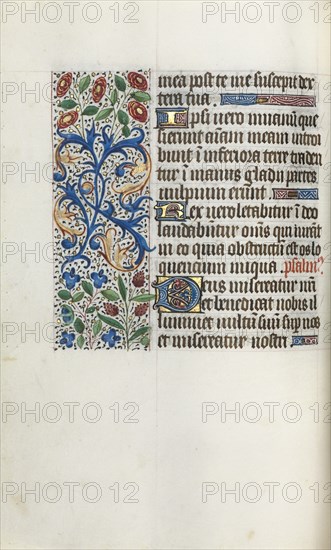 mea post te me suscepit dex
tera tua.
Ipsi vero in vanu que
sierunt aiam meam introi
bunt i inferiora terr traden
tur i manus gladii partes
vulpium erunt.
Rex vero letabitur i deo
laudabitur omes qui iurat
in eo quia obstructu est os lo
quencium iniqua. psalm
Deus misereatur nri
et benedicat nobis il
luminet vultu suu sup nos
et misereatur nostri
PHOTO 12
PHOTO 12
PHOTO 12
PHOTO 12
PHOTO 12
PHOTO 12
PHOTO 12
PHOTO 12